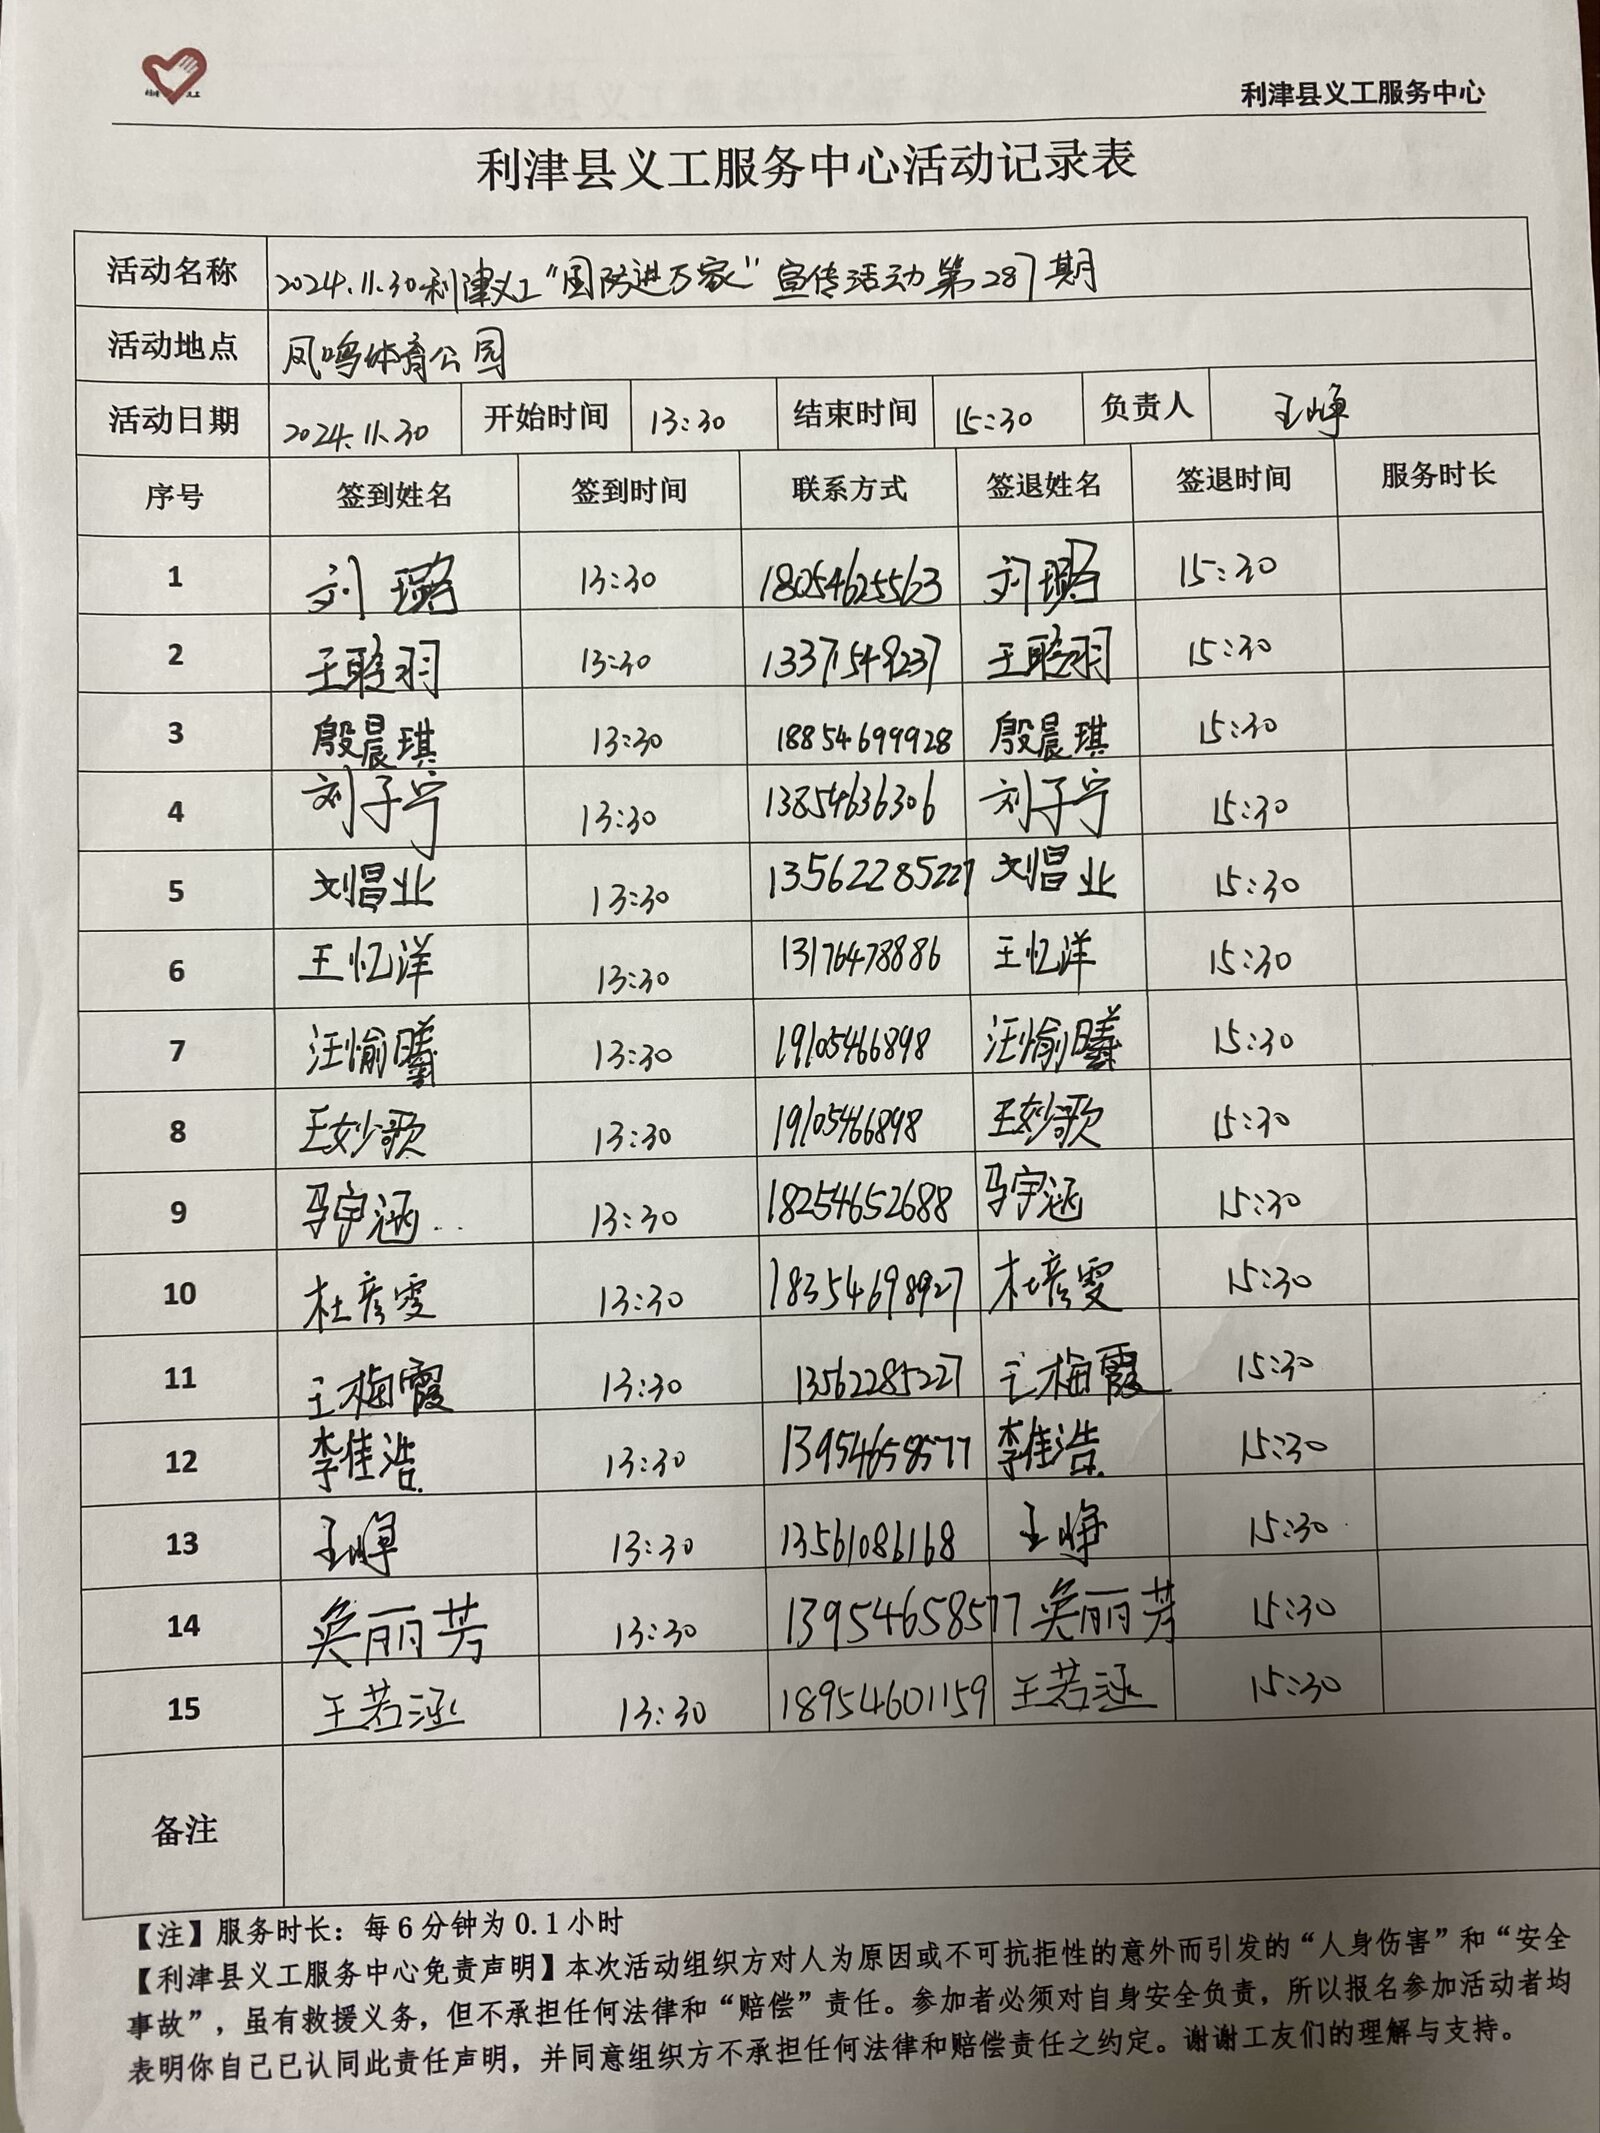 利津县义工服务中心
利津县义工服务中心活动记录表
活动名称 2024.11.30利津义工“国防进万家”宣传活动第287期
活动地点 凤鸣体育公园
活动日期 2024.11.30 开始时间 13:30 结束时间 15:30 负责人 王峥
序号 签到姓名 签到时间 联系方式 签退姓名 签退时间 服务时长
1 刘璐 13:30 18054625563 刘璐 15:30
2 13:30 13371549237 15:30
3 殷晨琪 13:30 18854699928 殷晨琪 15:30
4 刘子宁 13:30 13854636306 刘子宁 15:30
5 刘昌业 13:30 13562285227 刘昌业 15:30
6 王忆洋 13:30 13176478886 王忆洋 15:30
7 汪愉曦 13:30 19105466898 汪愉曦 15:30
8 王妙歌 13:30 19105466898 王妙歌 15:30
9 马宇涵 13:30 18254652688 马宇涵 15:30
10 杜彦雯 13:30 18354698927 杜彦雯 15:30
11 王梅霞 13:30 13562285227 王梅霞 15:30
12 李佳浩 13:30 13954658577 李佳浩 15:30
13 王峥 13:30 13561086168 王峥 15:30
14 吴丽芳 13:30 13954658577 吴丽芳 15:30
15 王若涵 13:30 18954601159 王若涵 15:30
备注
【注】服务时长：每6分钟为0.1小时
【利津县义工服务中心免责声明】本次活动组织方对人为原因或不可抗拒性的意外而引发的“人身伤害”和“安全
事故”，虽有救援义务，但不承担任何法律和“赔偿”责任。参加者必须对自身安全负责，所以报名参加活动者均
表明你自己已认同此责任声明，并同意组织方不承担任何法律和赔偿责任之约定。谢谢工友们的理解与支持。